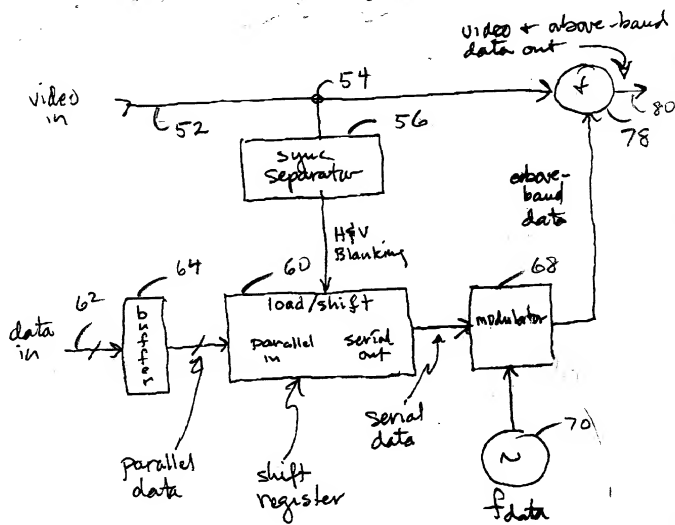 video + above-band
data out
54
video
in
52
56
+
80
78
sync
separator
above-
band
data
H&V
Blanking
64
60
68
62
load/shift
data
in
buffer
parallel
in
serial
out
modulator
serial
data
70
parallel
data
shift
register
~
fdata